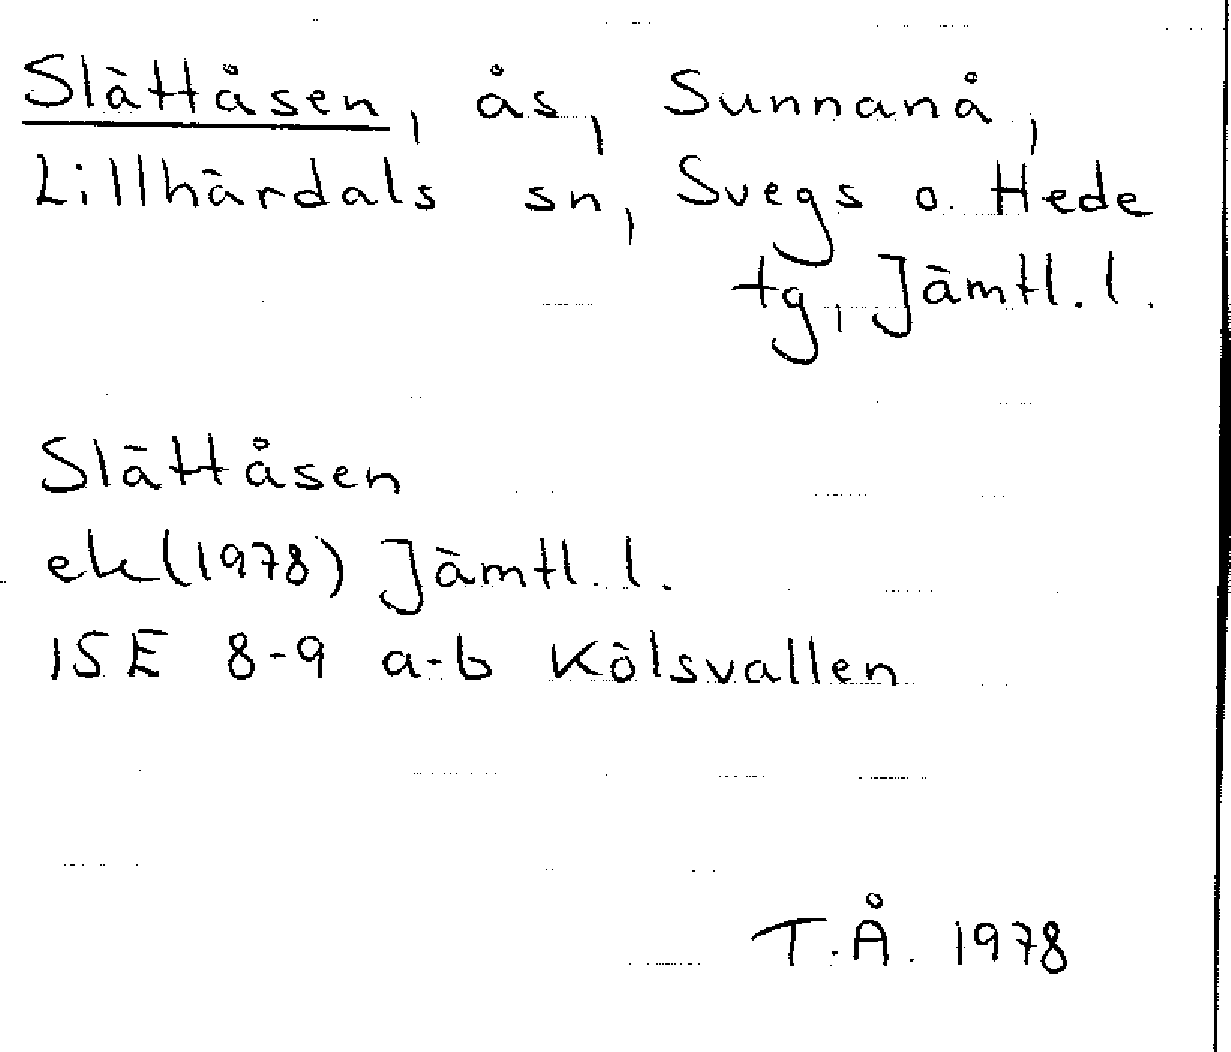 Slättåsen, ås, Sunnanå,
Lillhärdals sn, Svegs o. Hede
tg, Jämtl. l.
Slättåsen
ek (1978) Jämtl. l.
15E 8-9 a-b Kölsvallen
T.Å. 1978